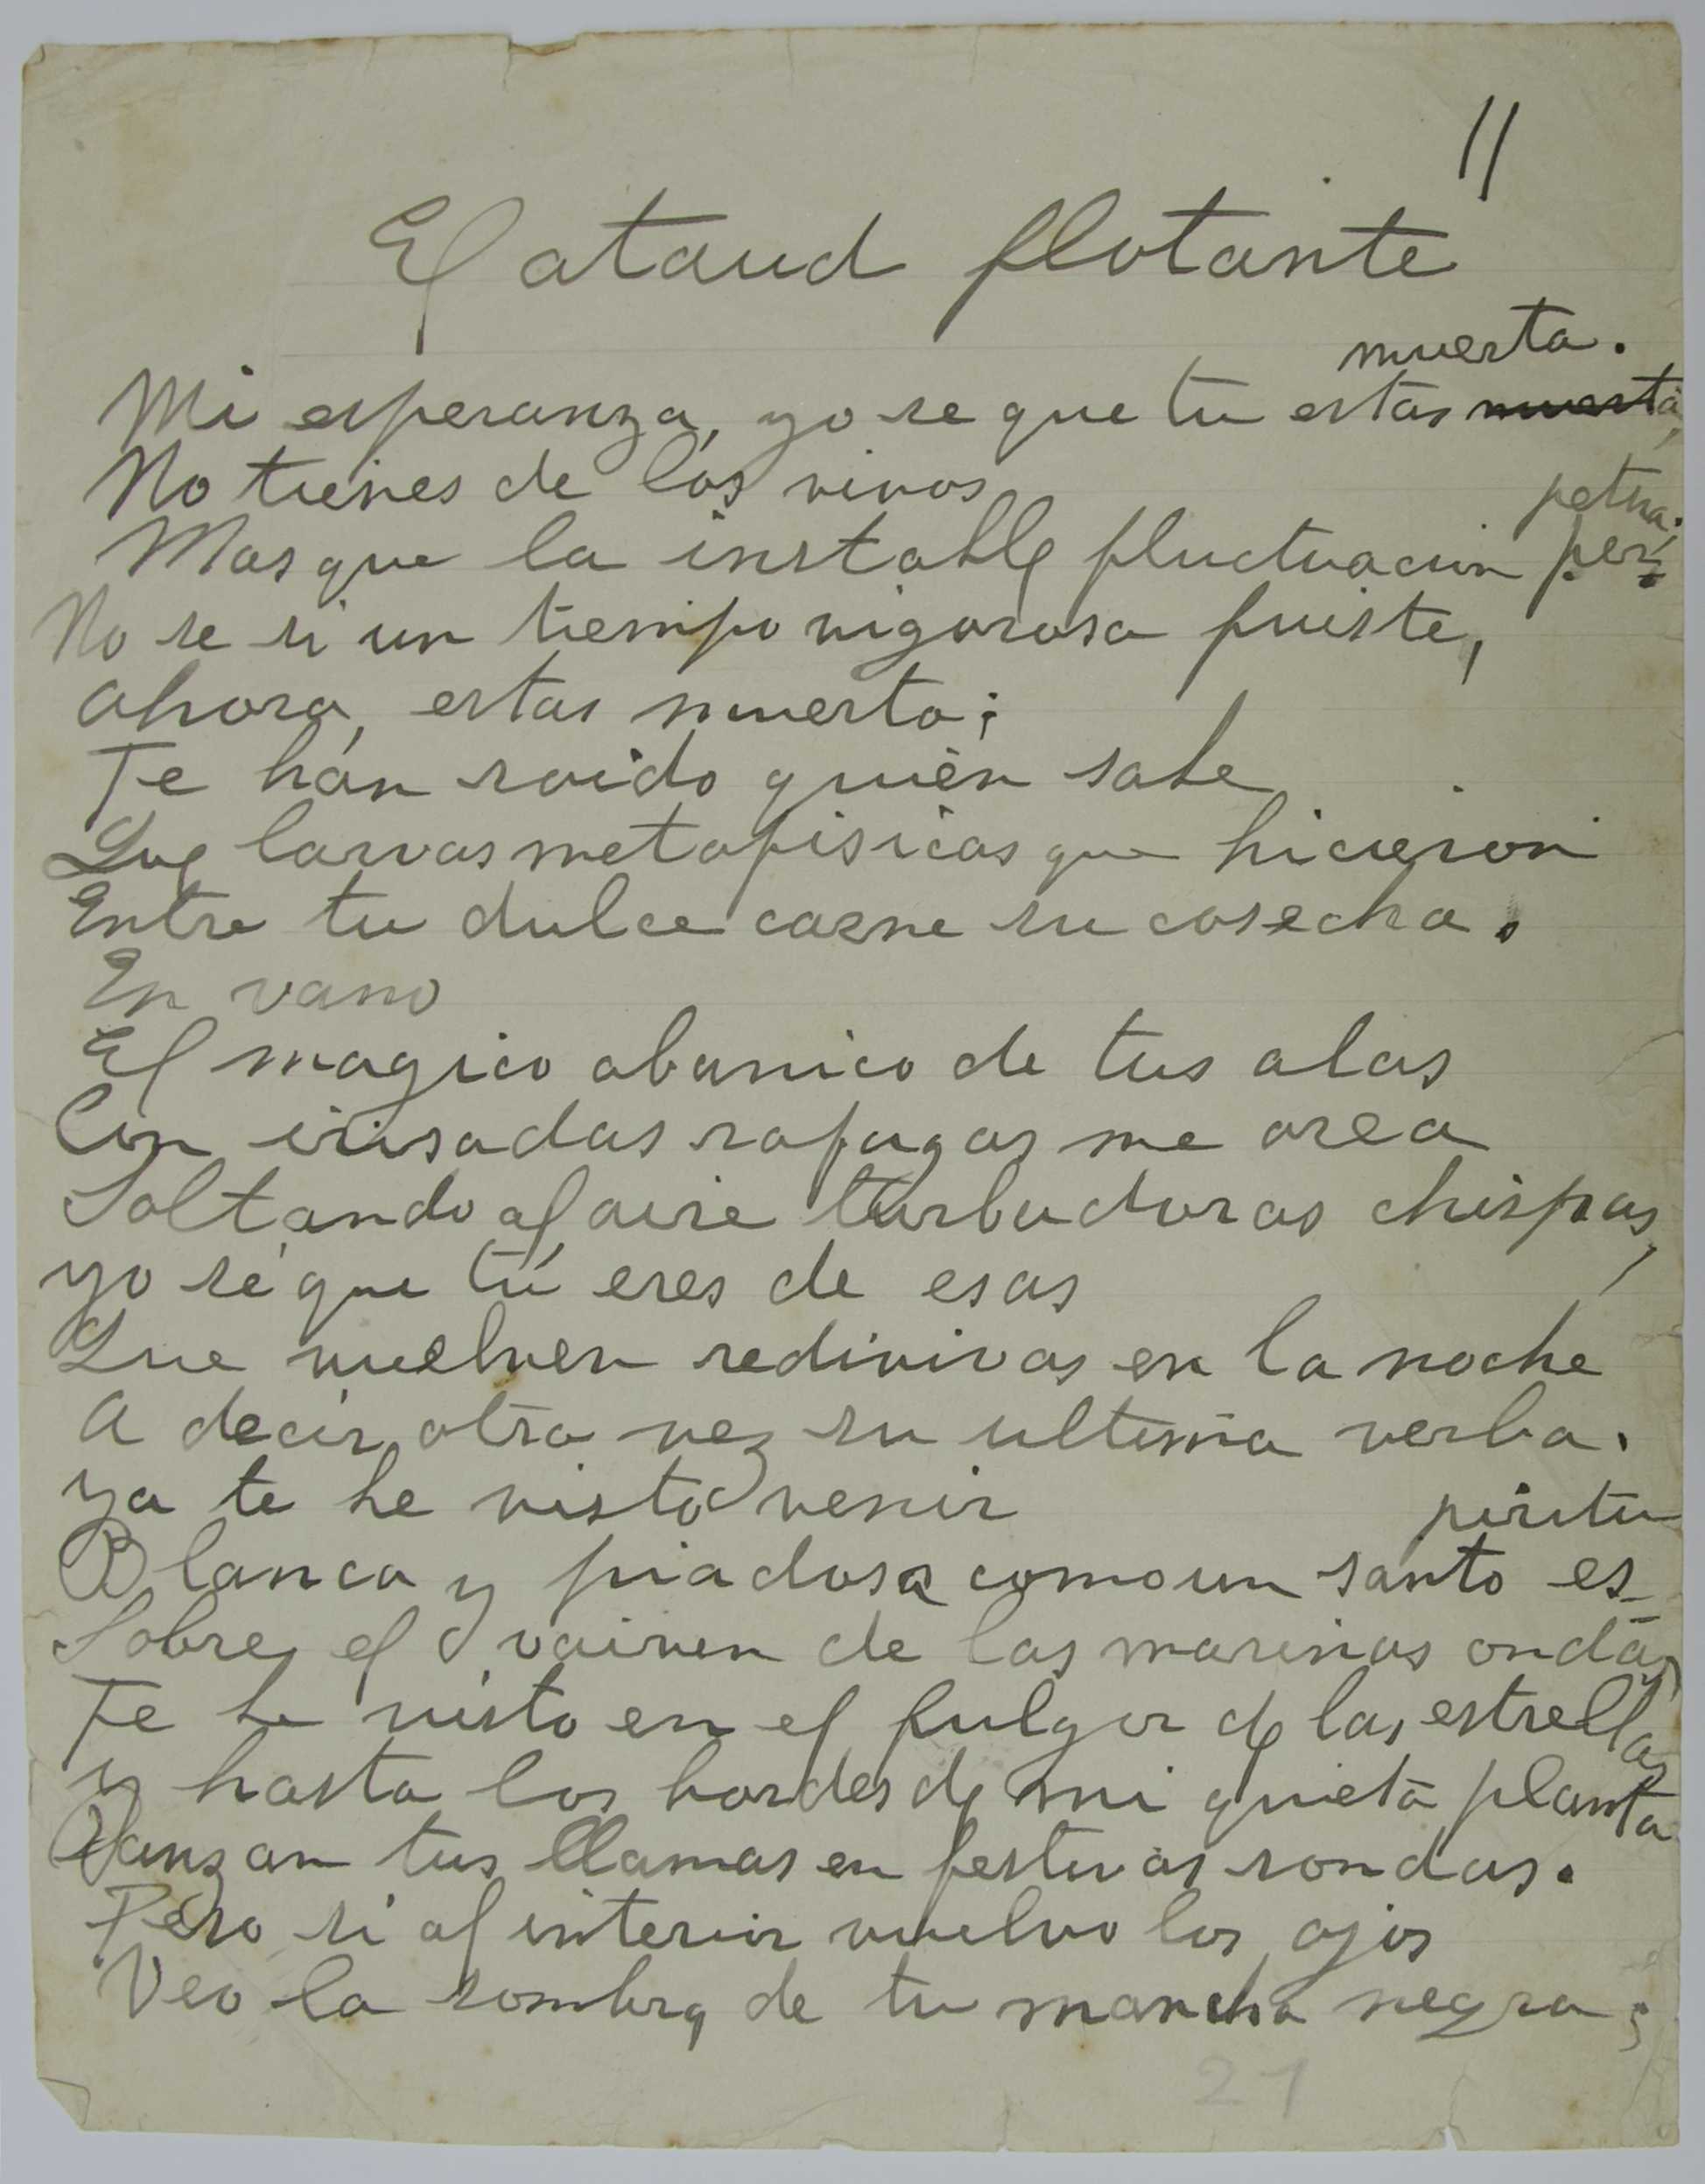 11
El ataud flotante
muerta.
Mi esperanza, yo se que tu estas muerta,
No tienes de los vivos
petua;
Mas que la instable fluctuacion per-
No se si un tiempo vigorosa fuiste,
Ahora, estas muerta;
Te han roido quién sabe
Que larvas metafisicas que hicieron
Entre tu dulce carne su cosecha.
En vano
El magico abanico de tus alas
Con irisadas rafagas me orea
Soltando al aire turbadoras chispas,
yo sé que tú eres de esas
Que vuelven redivivas en la noche
A decir otra vez su ultima verba.
ya te he visto venir
piritu
Blanca y piadosa como un santo es-
Sobre el vaiven de las marinas ondas,
Te he visto en el fulgor de las estrellas
y hasta los bordes de mi quieta planta
Danzan tus llamas en festivas rondas.
Pero si al interior vuelvo los ojos
Veo la sombra de tu mancha negra;
21